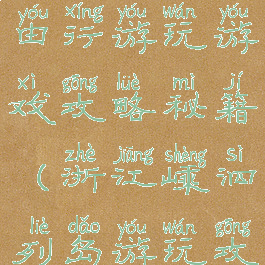 yóu xíng yóu wán yóu
由行游玩游
xì gōng lüè mì jí
戏攻略秘籍
zhè jiāng shèng sì
（浙江嵊泗
liè dǎo yóu wán gōng
列岛游玩攻